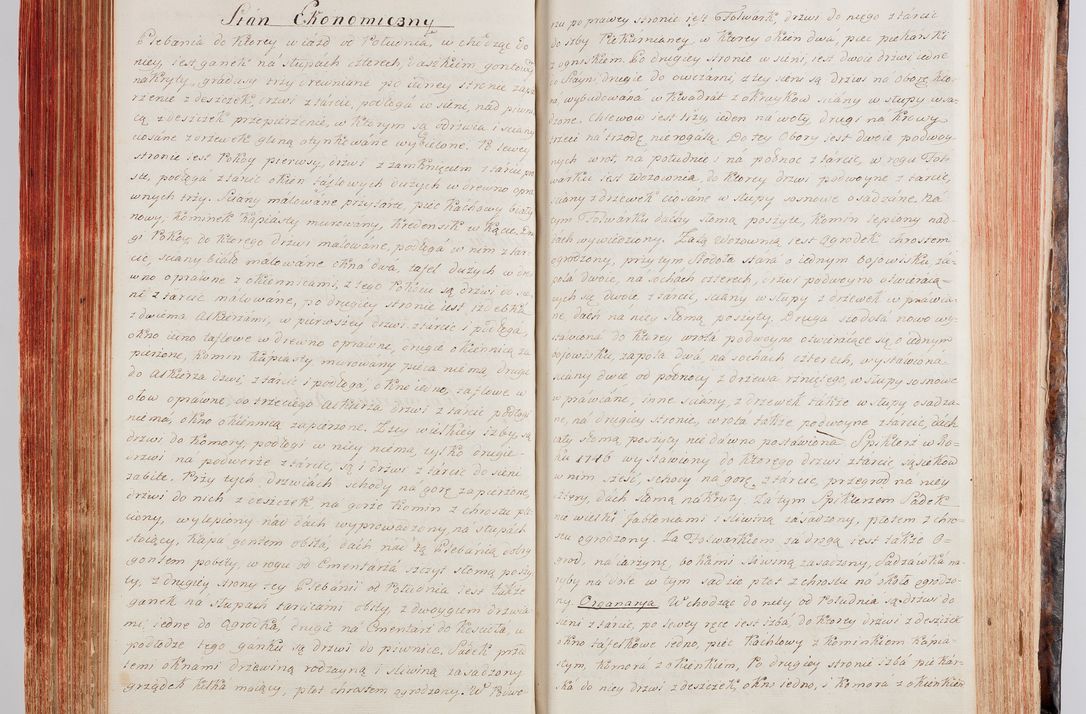 Stan Ekonomiczny
Plebania do ktorey wiazd od Południa, wchodząc do
niey, iest ganek na słupach czterech, daszkiem gontową
nakryty, gradusy trzy drewniane po iedney stronie zapa
rzenie z deszczek, drzwi z tarcic, podłoga w sieni, nad piwni
cą z deszczek przepierzenie, w ktorym są odrzwia i sciany
ciosane z drzewek gliną otynkowane wybielone. Po lewey
stronie iest Pokoy pierwszy, drzwi z zamknięciem z tarcic,
podłoga z tarcic okien taflowych duzych w drewno opra
wnych trzy. Sciany malowane przystare, piec kachlowy biały
nowy, kominek kapiasty murowany, kredensik w kącie. Dru
gi Pokoy, do ktorego drzwi malowane, podłoga w nim z tar
cic, sciany biało malowane okna dwa, tafel duzych w dre
wno oprawne z okiennicami, z tego Pokoiu są drzwi do sie
ni z tarcic malowane, po drugiey stronie iest izdebka
z dwiema Alkierzami, w pierwszey drzwi z tarcic i podłoga,
okno iedno taflowe w drewno oprawne, drugie okiennicą za
pierzone, komin kapiasty murowany pieca niema, drugie
do Alkierza drzwi z tarcic i podłoga, okno iedno, taflowe w
ołow oprawne, do trzeciego Alkierza drzwi z tarcic podłogi
niema, okno okiennicą zaparzone. Z tey wielkiey izby są
drzwi do komory, podłogi w niey niema, tylko drugie
drzwi na podworze z tarcic, są i drzwi z tarcic do sieni
zabite. Przy tych drzwiach schody na gorę zapierzone,
drzwi do nich z deszczek, na gorze komin z chrostu ple
ciony, wylepiony nad dach wyprowadzony na słupach
stoiący, kapa gontem obita, dach nad tą Plebanią dobry
gontem pobity, w rogu od Cmentarza szczyt słomą poszy
ty, z drugiey strony tey Plebanii od Południa iest także
ganek na słupach tarcicami obity, z dwoygiem drzwia
mi, iedne do Ogrodka, drugie na Cmentarz do Koscioła, w
podłodze tego ganku są drzwi do piwnice. Sadek przed
temi oknami drzewiną rodzayną i sliwiną zasadzony
grządek kilka maiący, płot chrostem ogrodzony. W Podwo-
rzu po prawey stronie iest Folwark, drzwi do niego z tarcic
do izby Piekarnianey, w ktorey okien dwa, piec piekarski
z ogniskiem. Po drugiey stronie w sieni, iest dwoie drzwi iedne
do Stayni drugie do owczarni, z tey sieni są drzwi na Oborę,
wybudowana w kwadrat z okraykow sciany w słupy wsa
dzone. Chlewow iest trzy, ieden na woły, drugi na krowy
trzeci na trzodę nierogatą. Do tey Obory iest dwoie podwoy
nych wrot, na południe i na połnoc z tarcic, w rogu Fol
warku iest Wozownia, do ktorey drzwi podwoyne z tarcic,
sciany z drzewek ciosane w słupy sosnowe osadzone. Na
tym Folwarku dachy słomą poszyte, komin lepiony nad
dach wywiedziony. Za tą Wozownią iest Ogrodek chrostem
ogrodzony, przy tym Stodoła stara o iednym boiowisku, za
pola dwoie, na sochach czterech, drzwi podwoyno otwieraią
cych się dwoie z tarcic, sciany w słupy z drzewek w prawio
ne, dach na niey słomą poszyty. Druga stodoła nowo wy
stawiona do ktorey wrota podwoyne otwieraiące się, o iednym
boiowisku, zapola dwa, na sochach czterech, wystawiona
sciany dwie od połnocy z drzewa rzniętego, w słupy sosnowe
w prawiane, inne sciany, z drzewek także w słupy osadza
ne, na drugiey stronie, wrota także podwoyne z tarcic, dach
cały słomą poszyty nie dawno postawiona. Spiklerz w Ro-
ku 1746 wystawiony do ktorego drzwi z tarcic sąsiekow
w nim szesć, schody na gorę z tarcic, przegrod na niey
cztery, dach słomą nakryty. Za tym Spiklerzem Sadek
nie wielki Jabłoniami i sliwiną zasadzony, płotem z chro
stu ogrodzony. Za Folwarkiem za drogą iest także O-
grod, na iarzynę, bokami sliwiną zasadzony, Sadzawka na
ryby na dole w tym sadzie płot z chrostu na okoła ogrodzo-
ny. Organarya Wchodząc do niey od Południa są drzwi do
sieni z tarcic, po lewey ręce iest izba, do ktorey drzwi z deszczek
okno taflkowe iedno, piec kachlowy z kominkiem kapia-
stym, komora z okienkiem, Po drugiey stronie izba piekar-
ska do niey drzwi z deszczek, okno iedno, i komora z okienkiem